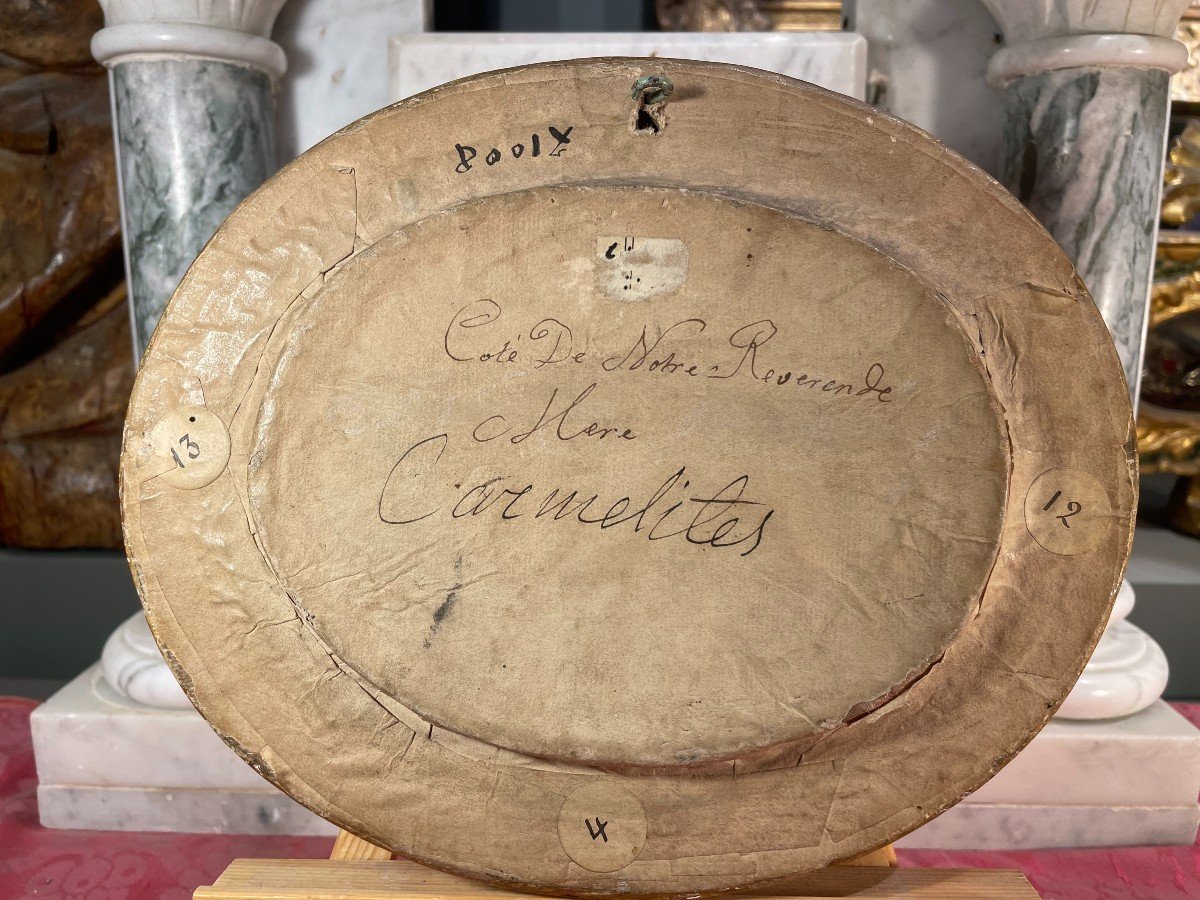 Coté De Notre Reverende
Mere
Carmelites
13
12
4